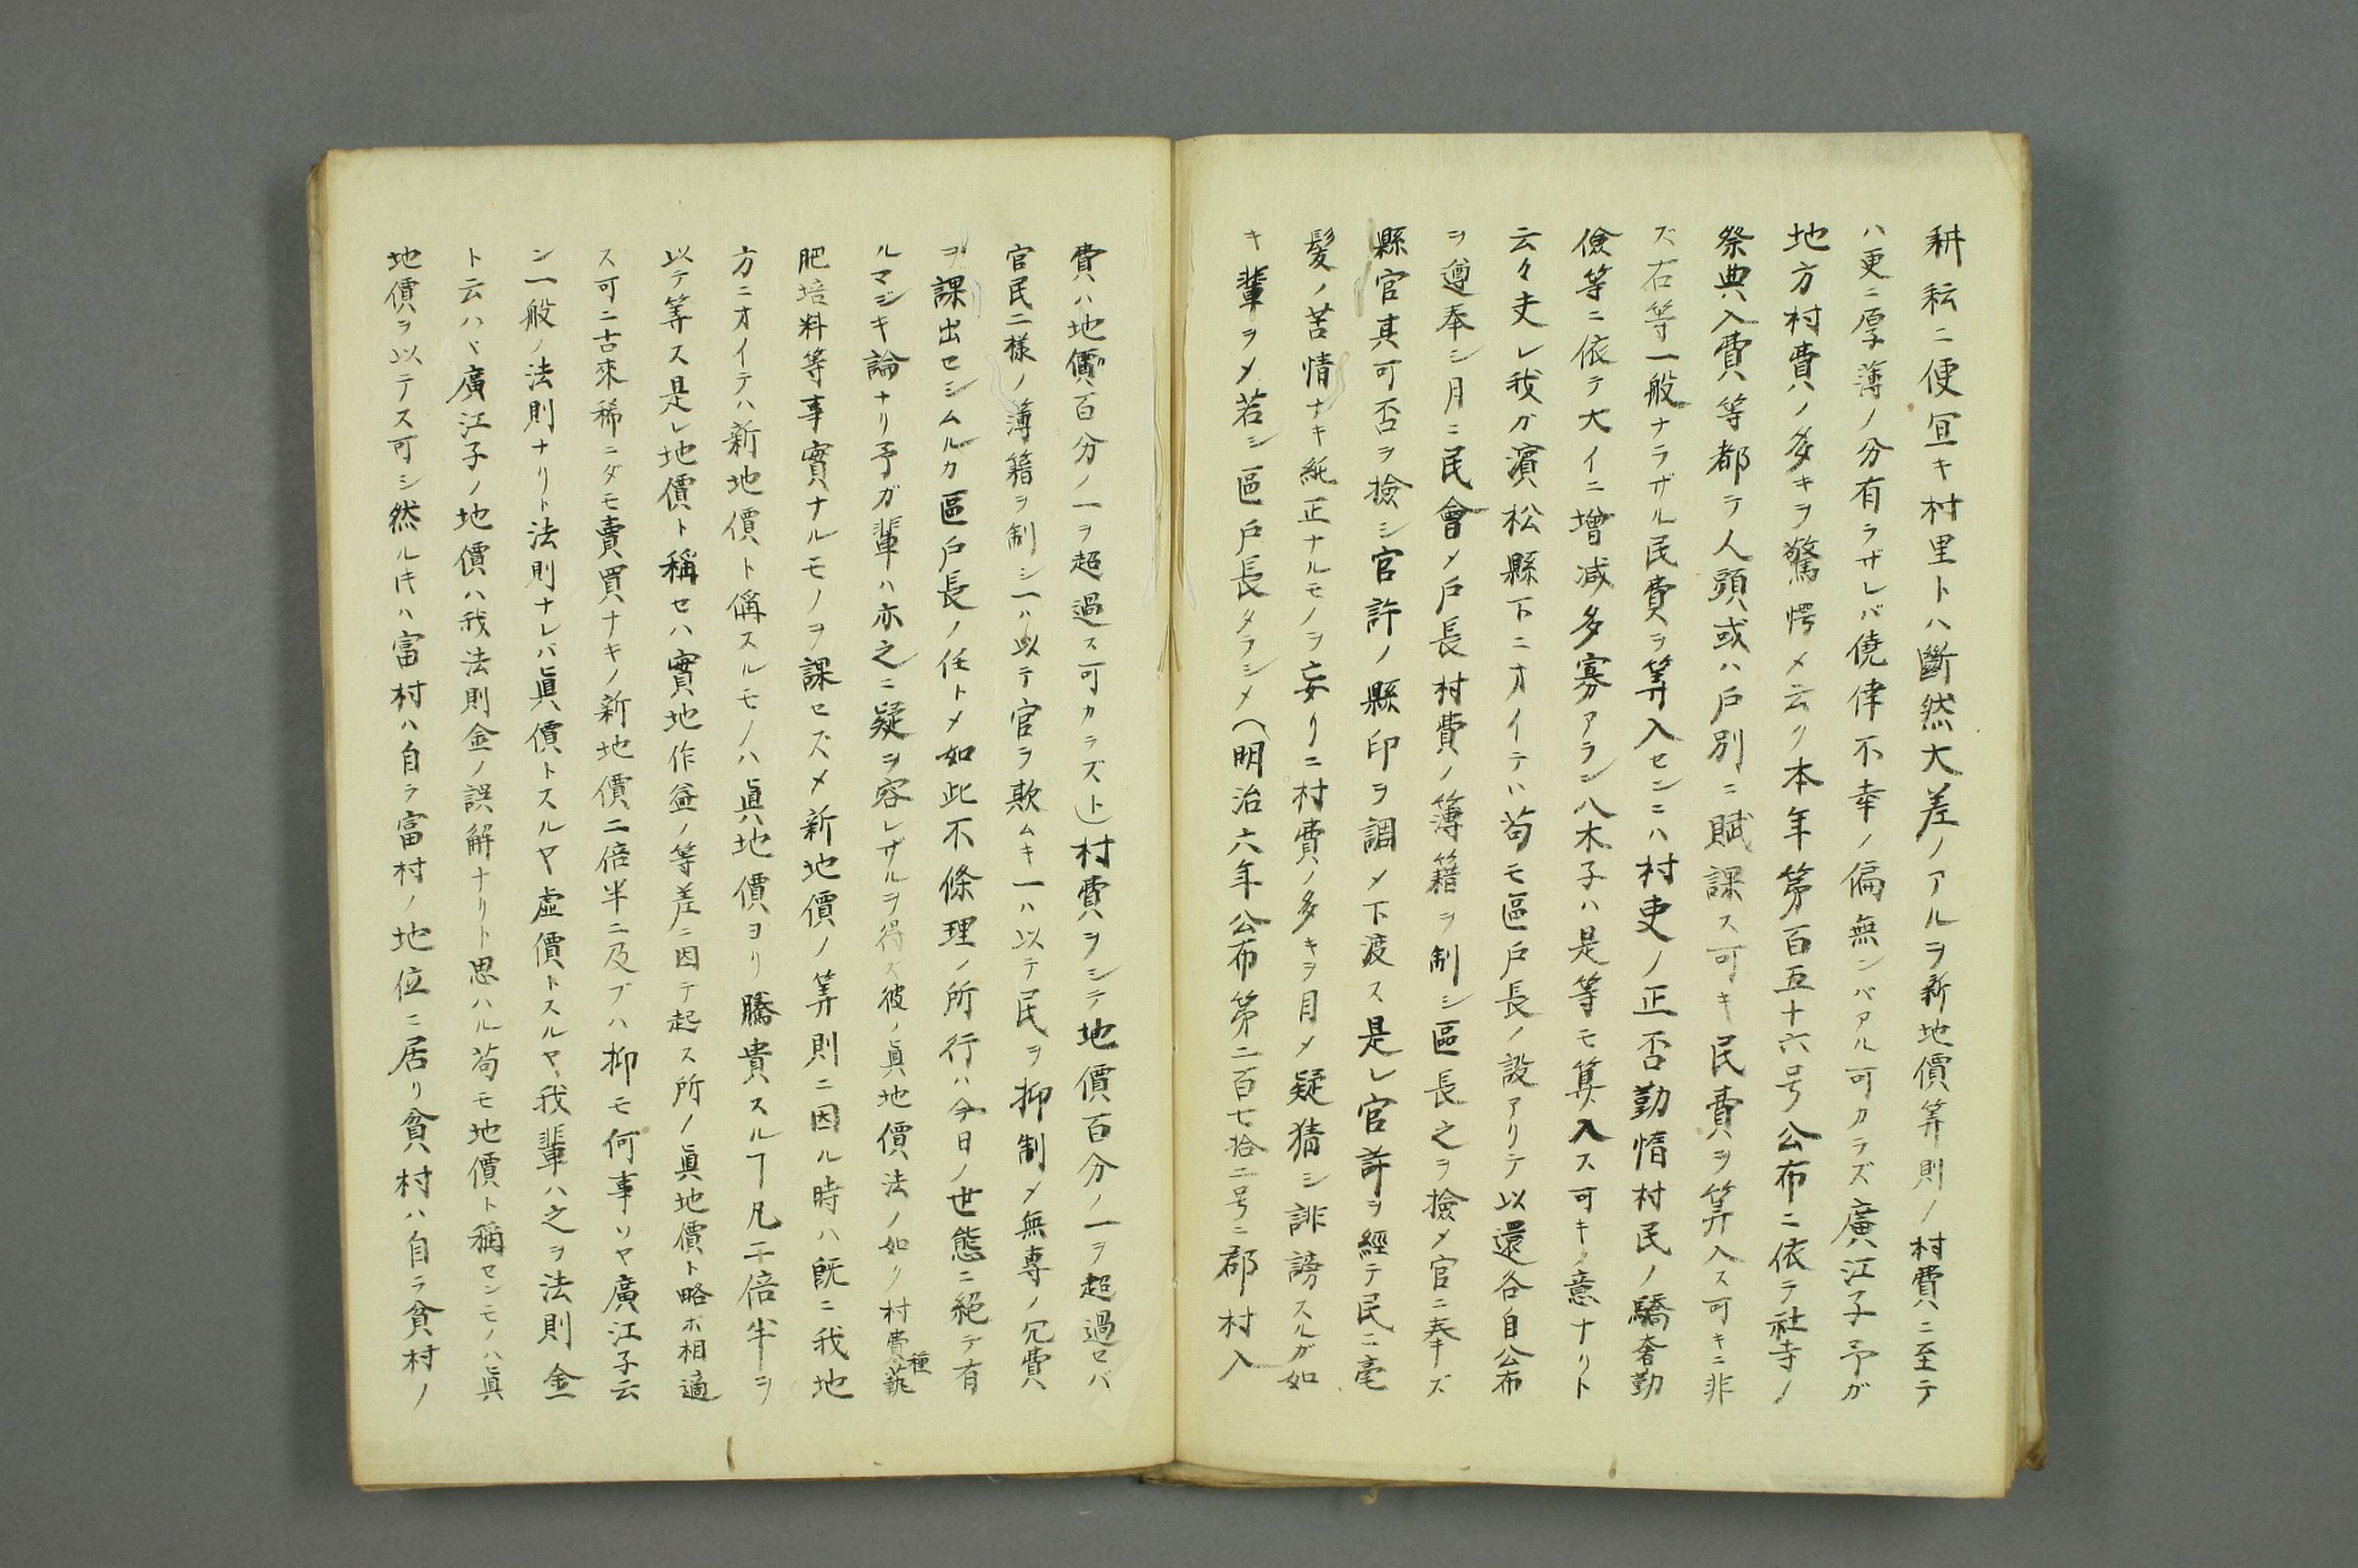 耕耘ニ便宜キ村里トハ斷然大差ノアルヲ新地價筭則ノ村費ニ至テ
ハ更ニ厚薄ノ分有ラザレバ僥倖不幸ノ偏無ンバアル可カラズ廣江子予ガ
地方村費ノ多キヲ驚愕メ云ク本年第百五十六号公布ニ依テ社寺ノ
祭典入費等都テ人頭或ハ戸別ニ賦課ス可キ民費ヲ筭入ス可キニ非
ズ右等一般ナラザル民費ヲ筭入センニハ村吏ノ正否勤惰村民ノ驕奢勤
儉等ニ依テ大イニ増减多寡アラン八木子ハ是等モ算入ス可キノ意ナリト
云々夫レ我ガ濱松縣下ニオイテハ苟モ區戸長ノ設アリテ以還各自公布
ヲ遵奉シ月ニ民會メ戸長村費ノ簿籍ヲ制シ區長之ヲ撿メ官ニ奉ズ
縣官其可否ヲ撿シ官許ノ縣印ヲ調メ下渡ス是レ官許ヲ經テ民ニ毫
髪ノ苦情ナキ純正ナルモノヲ妄リニ村費ノ多キヲ目メ疑猜シ誹謗スルガ如
キ輩ヲメ若シ區戸長タラシメ(明治六年公布第二百七拾二号ニ郡村入
費ハ地價百分ノ一ヲ超過ス可カラズト)村費ヲシテ地價百分ノ一ヲ超過セバ
官民二様ノ薄籍ヲ制シ一ハ以テ官ヲ欺ムキ一ハ以テ民ヲ抑制メ無専ノ冗費
ヲ課出セシムルカ區戸長ノ任トメ如此不條理ノ所行ハ今日ノ世態ニ絶テ有
ルマジキ論ナリ予ガ輩ハ亦之ニ疑ヲ容レザルヲ得ズ彼ノ眞地價法ノ如ク村費種藝
肥培料等事實ナルモノヲ課セズメ新地價ノ筭則ニ因ル時ハ既ニ我地
方ニオイテハ新地價ト偁スルモノハ眞地價ヨリ騰貴スルヿ凡二倍半ヲ
以テ等ス是レ地價ト稱セハ實地作益ノ等差ニ因テ起ス所ノ眞地價ト略ボ相適
ス可ニ古來稀ニダモ賣買ナキノ新地價二倍半ニ及ブハ抑モ何事ソヤ廣江子云
ン一般ノ法則ナリト法則ナレバ眞價トスルヤ虚價トスルヤ我輩ハ之ヲ法則金
ト云ハヾ廣江子ノ地價ハ我法則金ノ誤解ナリト思ハル苟モ地價ト稱センモノハ眞
地價ヲ以テス可シ然ルトキハ富村ハ自ラ富村ノ地位ニ居リ貧村ハ自ラ貧村ノ